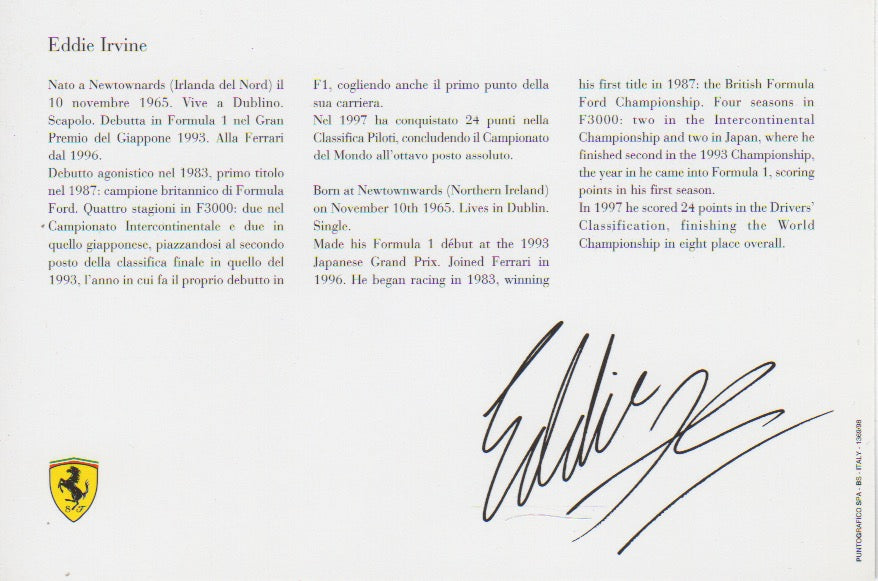 Eddie Irvine
Nato a Newtownards (Irlanda del Nord) il
10 novembre 1965. Vive a Dublino.
Scapolo. Debutta in Formula 1 nel Gran
Premio del Giappone 1993. Alla Ferrari
dal 1996.
Debutto agonistico nel 1983, primo titolo
nel 1987: campione britannico di Formula
Ford. Quattro stagioni in F3000: due nel
Campionato Intercontinentale e due in
quello giapponese, piazzandosi al secondo
posto della classifica finale in quello del
1993, l'anno in cui fa il proprio debutto in
F1, cogliendo anche il primo punto della
sua carriera.
Nel 1997 ha conquistato 24 punti nella
Classifica Piloti, concludendo il Campionato
del Mondo all'ottavo posto assoluto.
Born at Newtownwards (Northern Ireland)
on November 10th 1965. Lives in Dublin.
Single.
Made his Formula 1 début at the 1993
Japanese Grand Prix. Joined Ferrari in
1996. He began racing in 1983, winning
his first title in 1987: the British Formula
Ford Championship. Four seasons in
F3000: two in the Intercontinental
Championship and two in Japan, where he
finished second in the 1993 Championship,
the year in he came into Formula 1, scoring
points in his first season.
In 1997 he scored 24 points in the Drivers'
Classification, finishing the World
Championship in eight place overall.
Eddie
S F
PUNTOGRAFICO SPA - BS - ITALY - 1369/98